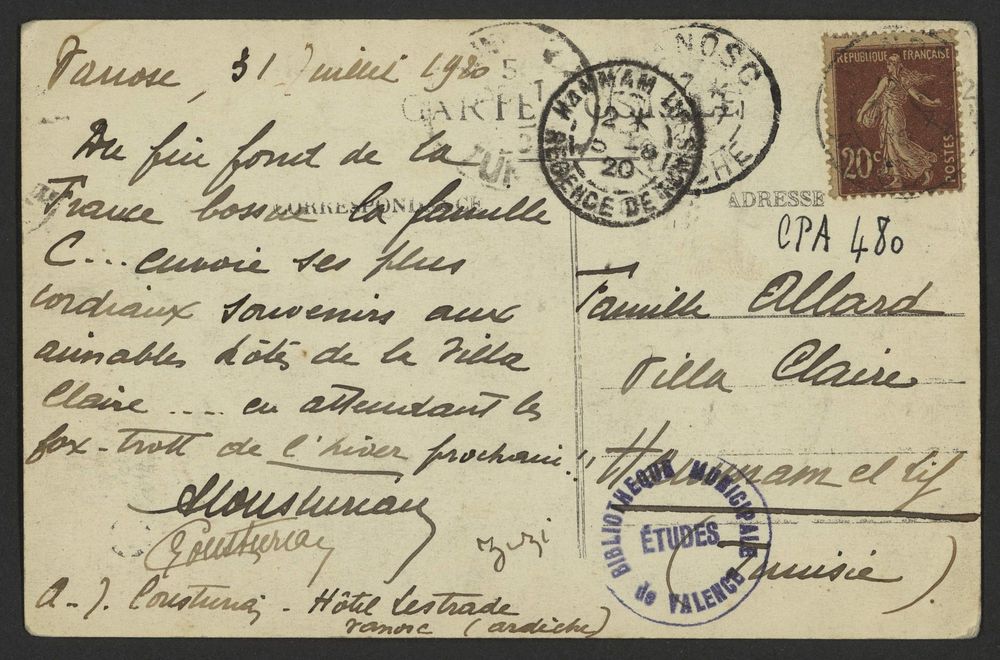 Vanosc, 31 Juillet 1920
Du fin fond de la
France bossue la famille
C... envoie ses plus
cordiaux souvenirs aux
aimables hôtes de la Villa
Claire .... en attendant les
fox-trott de l'hiver prochain!
A. J. - Hôtel Lestrade
Vanosc (ardèche)
CARTE
CORRESPONDANCE
HAMMAM LIF
REGENCE DE TUNIS
20
ADRESSE
RÉPUBLIQUE FRANÇAISE
20c
POSTES
CPA 480
Famille Allard
Villa Claire
Hammam el Lif
(Tunisie)
BIBLIOTHEQUE MUNICIPALE
ÉTUDES
de VALENCE